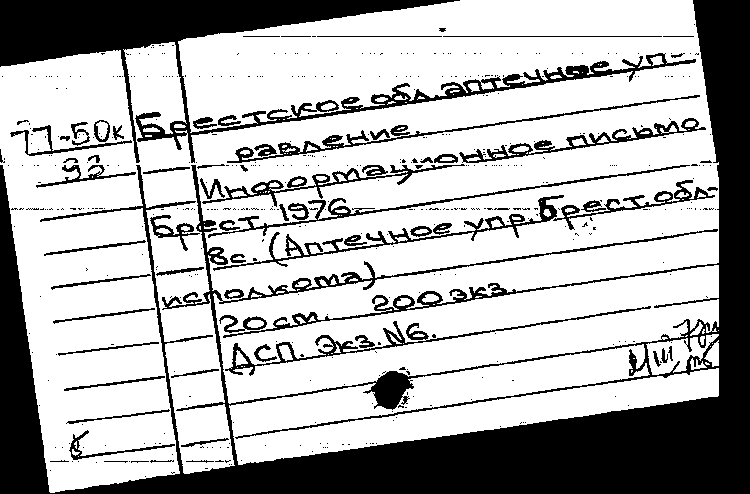 77-50к Брестское обл. аптечное уп-
93 равление.
Информационное письмо
Брест, 1976.
8с. (Аптечное упр. Брест. обл-
исполкома).
20 см. 200 экз.
ДСП. Экз. N6.